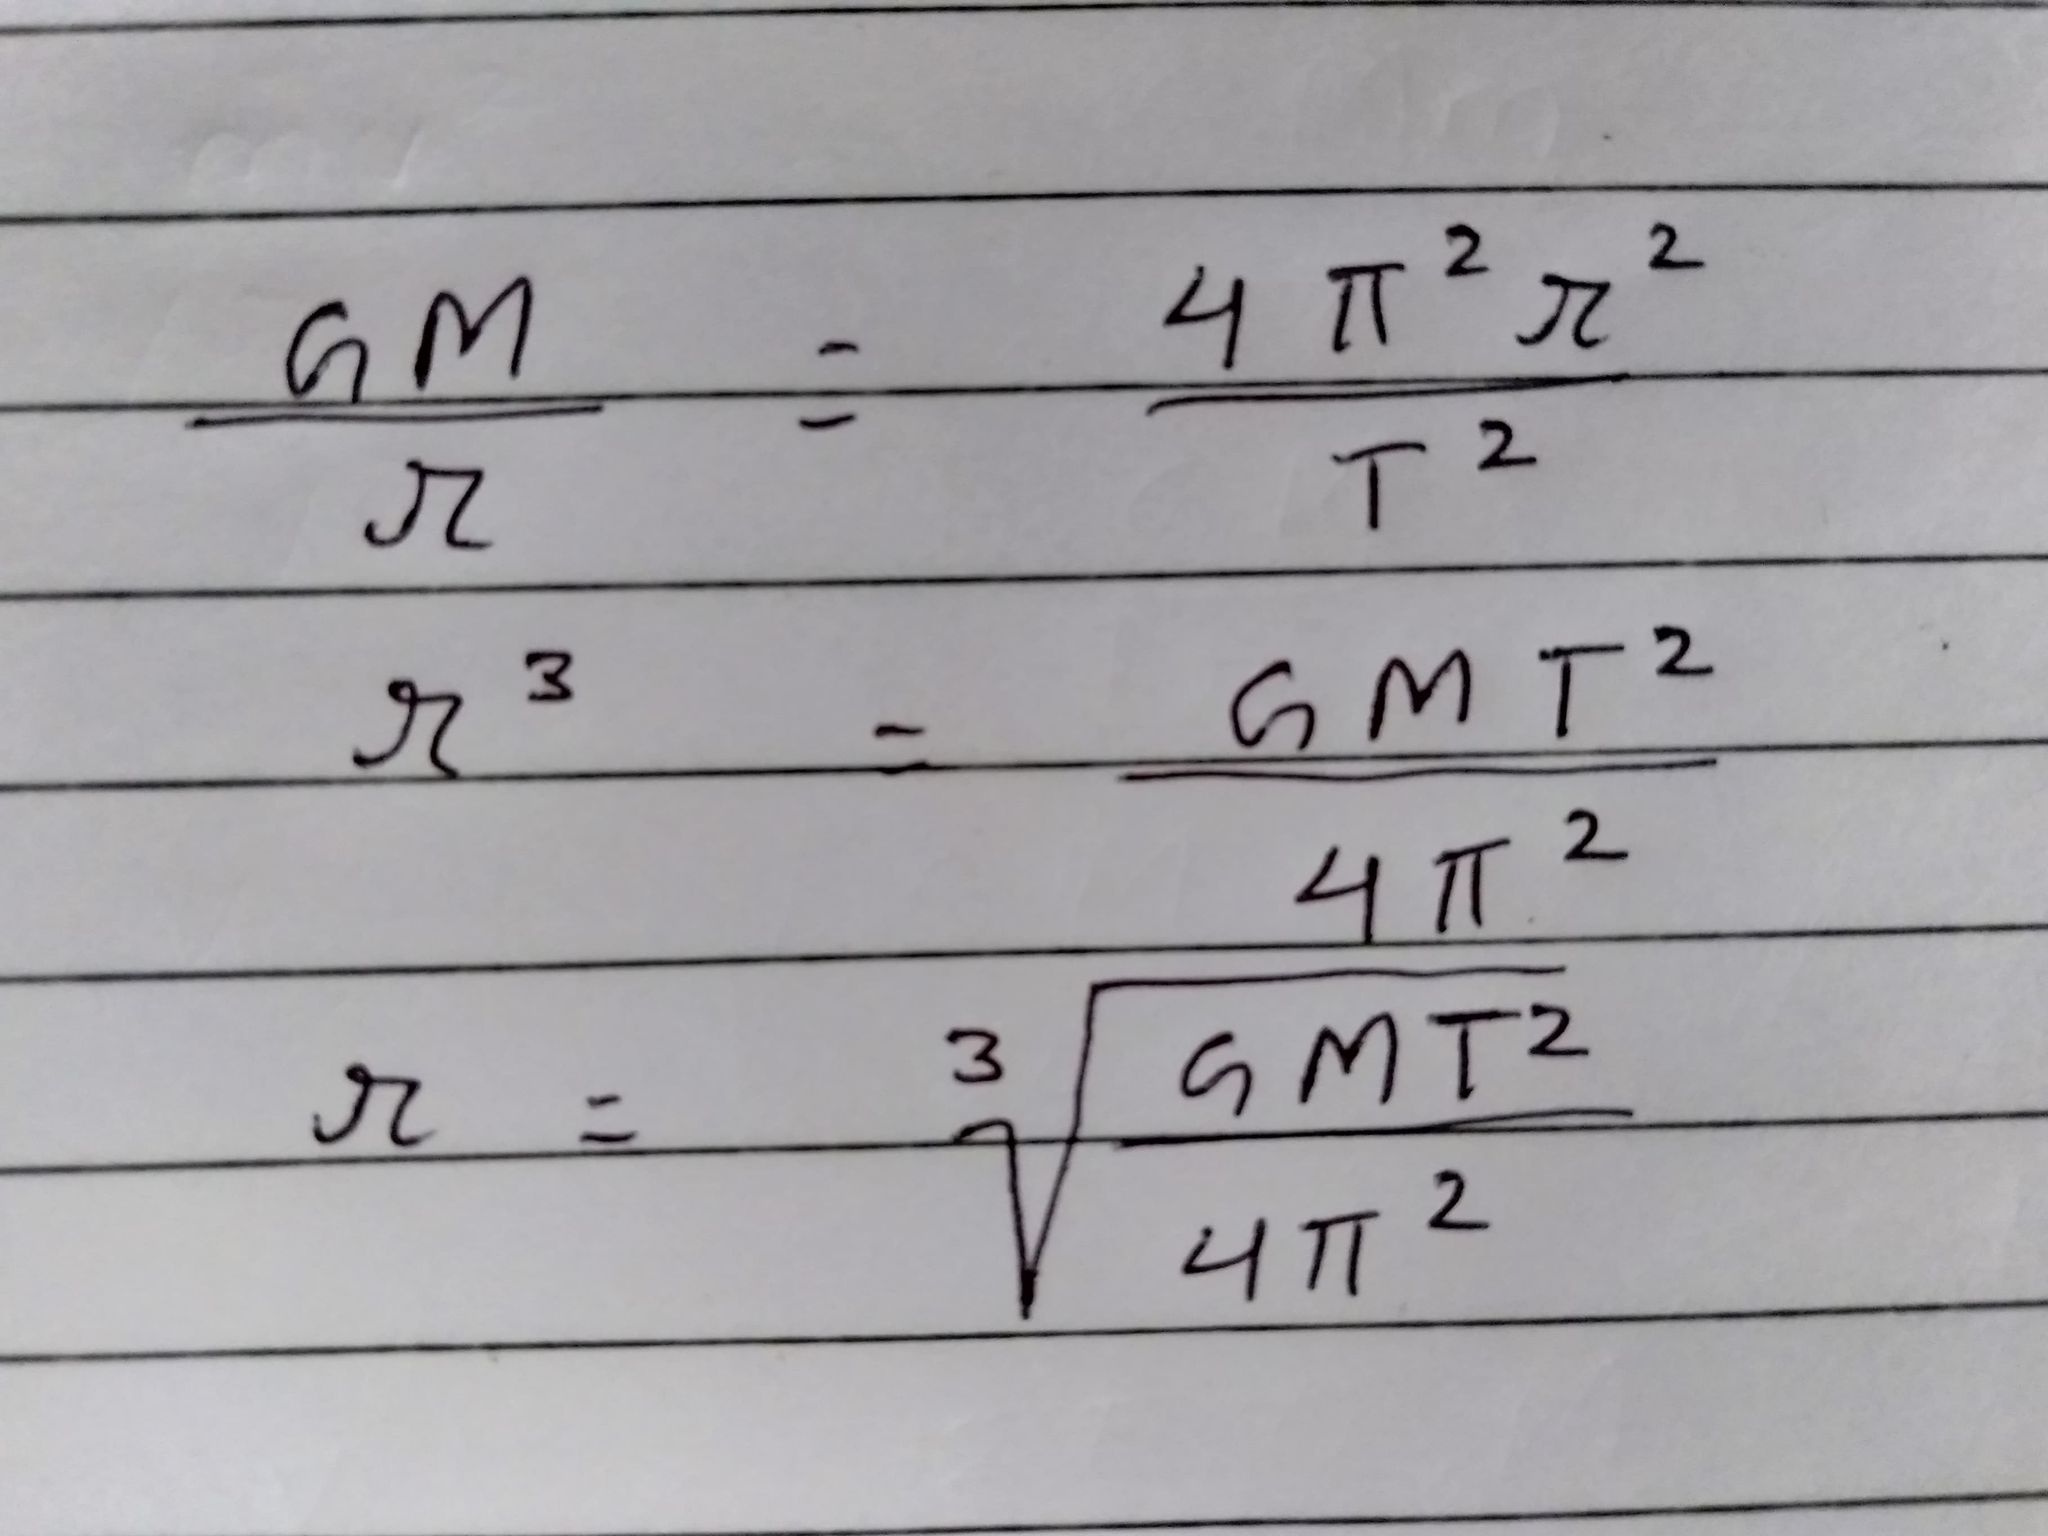 GM/r = 4π²r²/T²
r³ = GMT²/4π²
r = ∛(GMT²/4π²)